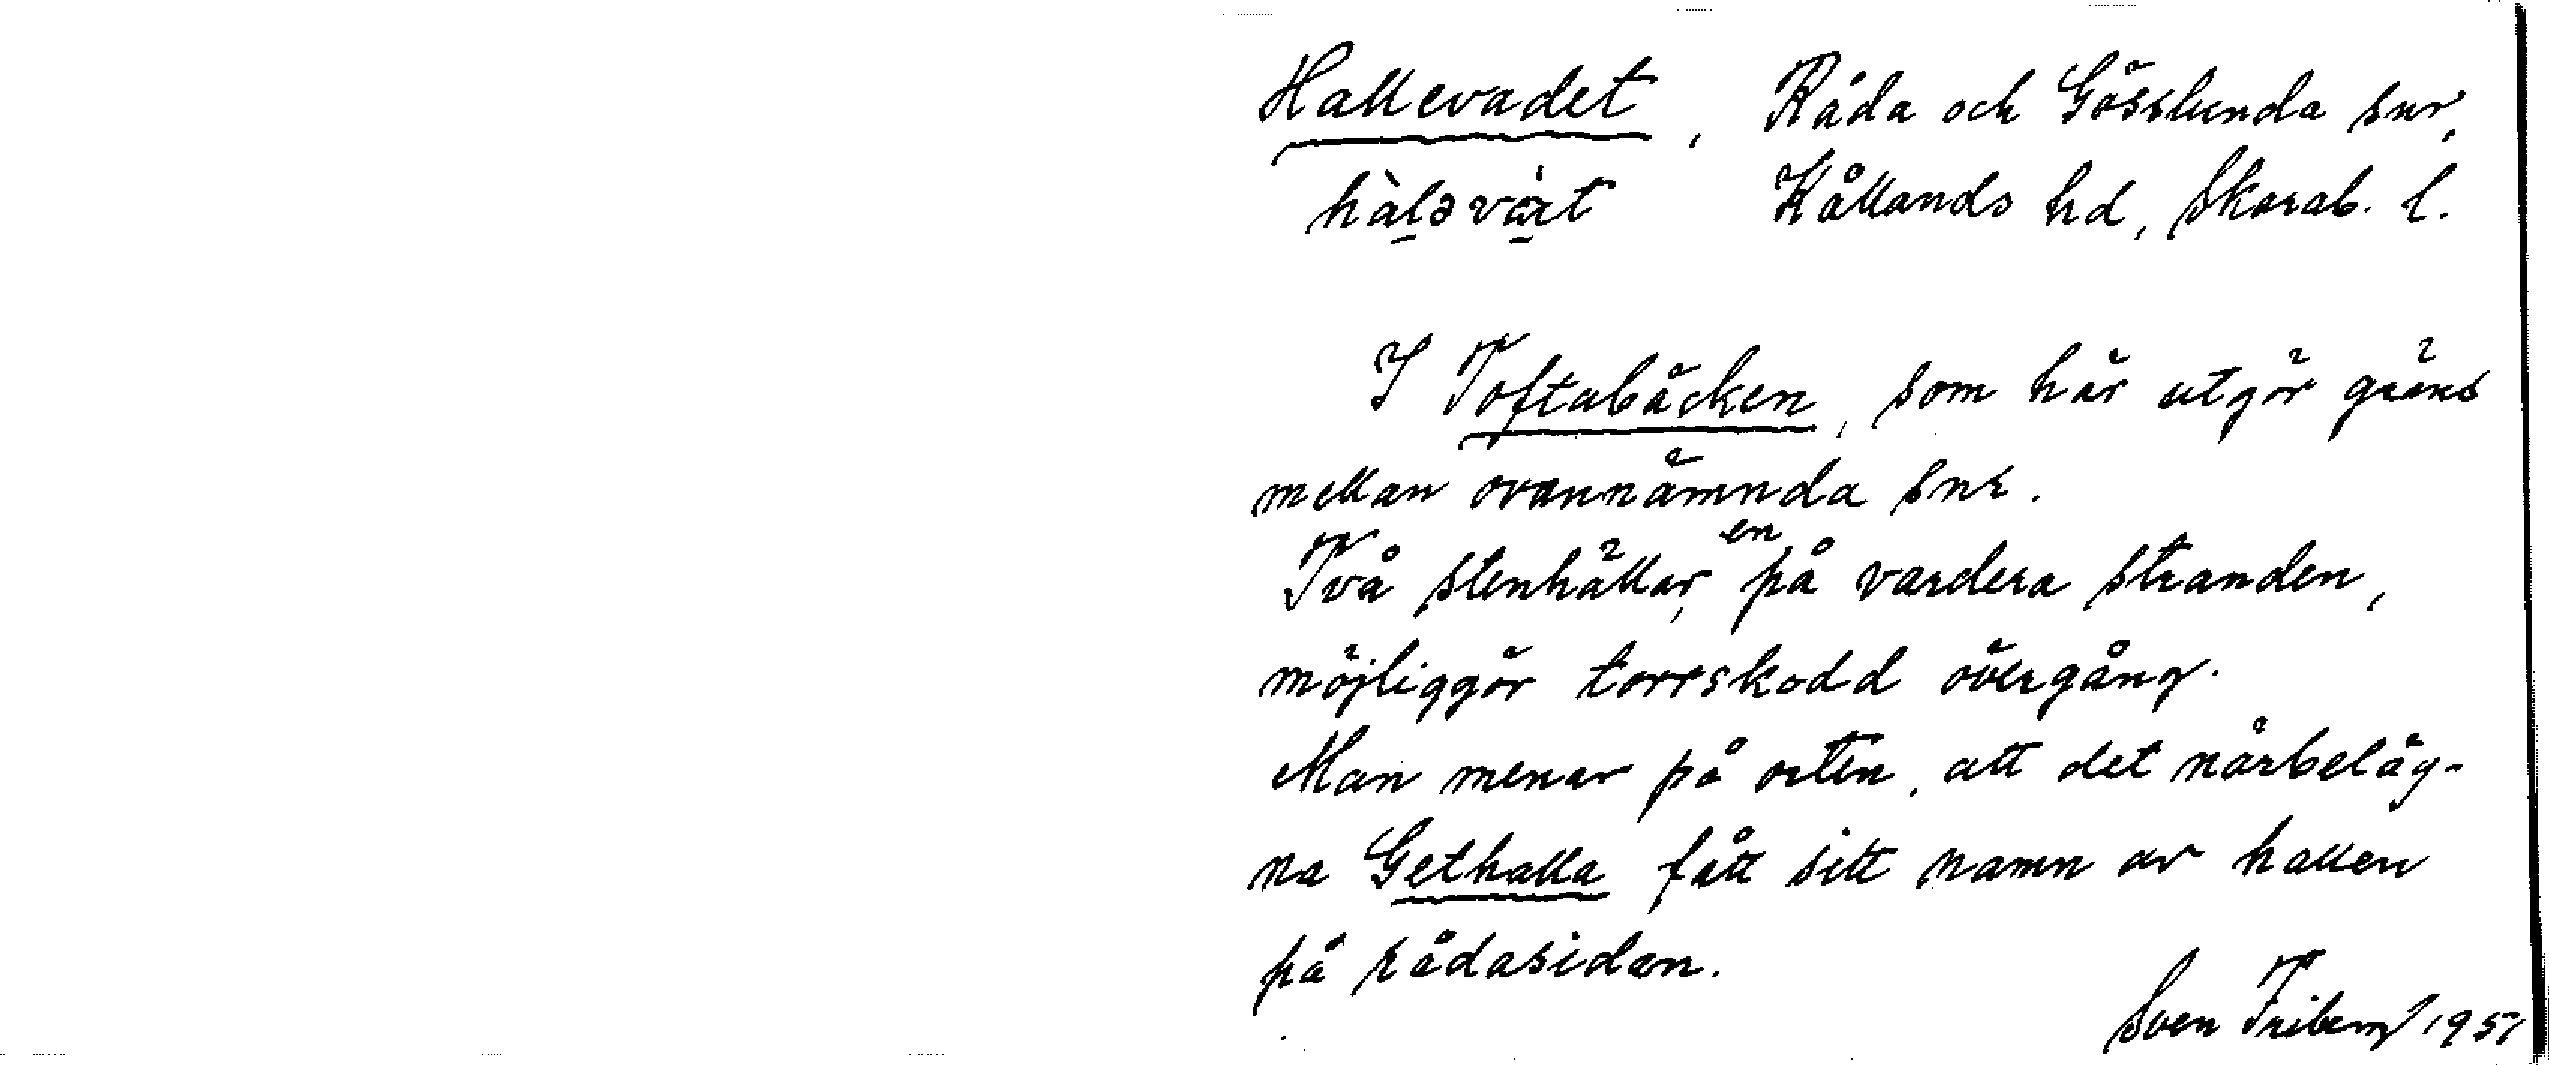 Hallevadet, Råda och Gösslunda snr,
hàl̠əvàt Kållands hd, Skarab. l.
I Toftabäcken, som här utgör gräns
mellan ovannämnda snr.
Två stenhällar, en på vardera stranden,
möjliggör torrskodd övergång.
Man menar på orten, att det närbeläg-
na Gethalla fått sitt namn av hallen
på rådasidan.
Sven 1951